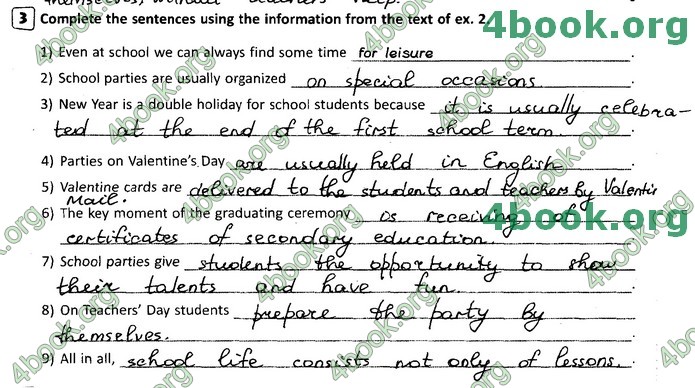 themselves, without teachers' help.
3 Complete the sentences using the information from the text of ex. 2.
4book.org
1) Even at school we can always find some time for leisure.
2) School parties are usually organized on special occasions.
3) New Year is a double holiday for school students because it is usually celebra-
ted at the end of the first school term.
4) Parties on Valentine's Day are usually held in English.
5) Valentine cards are delivered to the students and teachers by Valentin
Mail.
4book.org
6) The key moment of the graduating ceremony is receiving of
certificates of secondary education.
7) School parties give students the opportunity to show
their talents and have fun.
8) On Teachers' Day students prepare the party by
themselves.
9) All in all, school life consists not only of lessons.